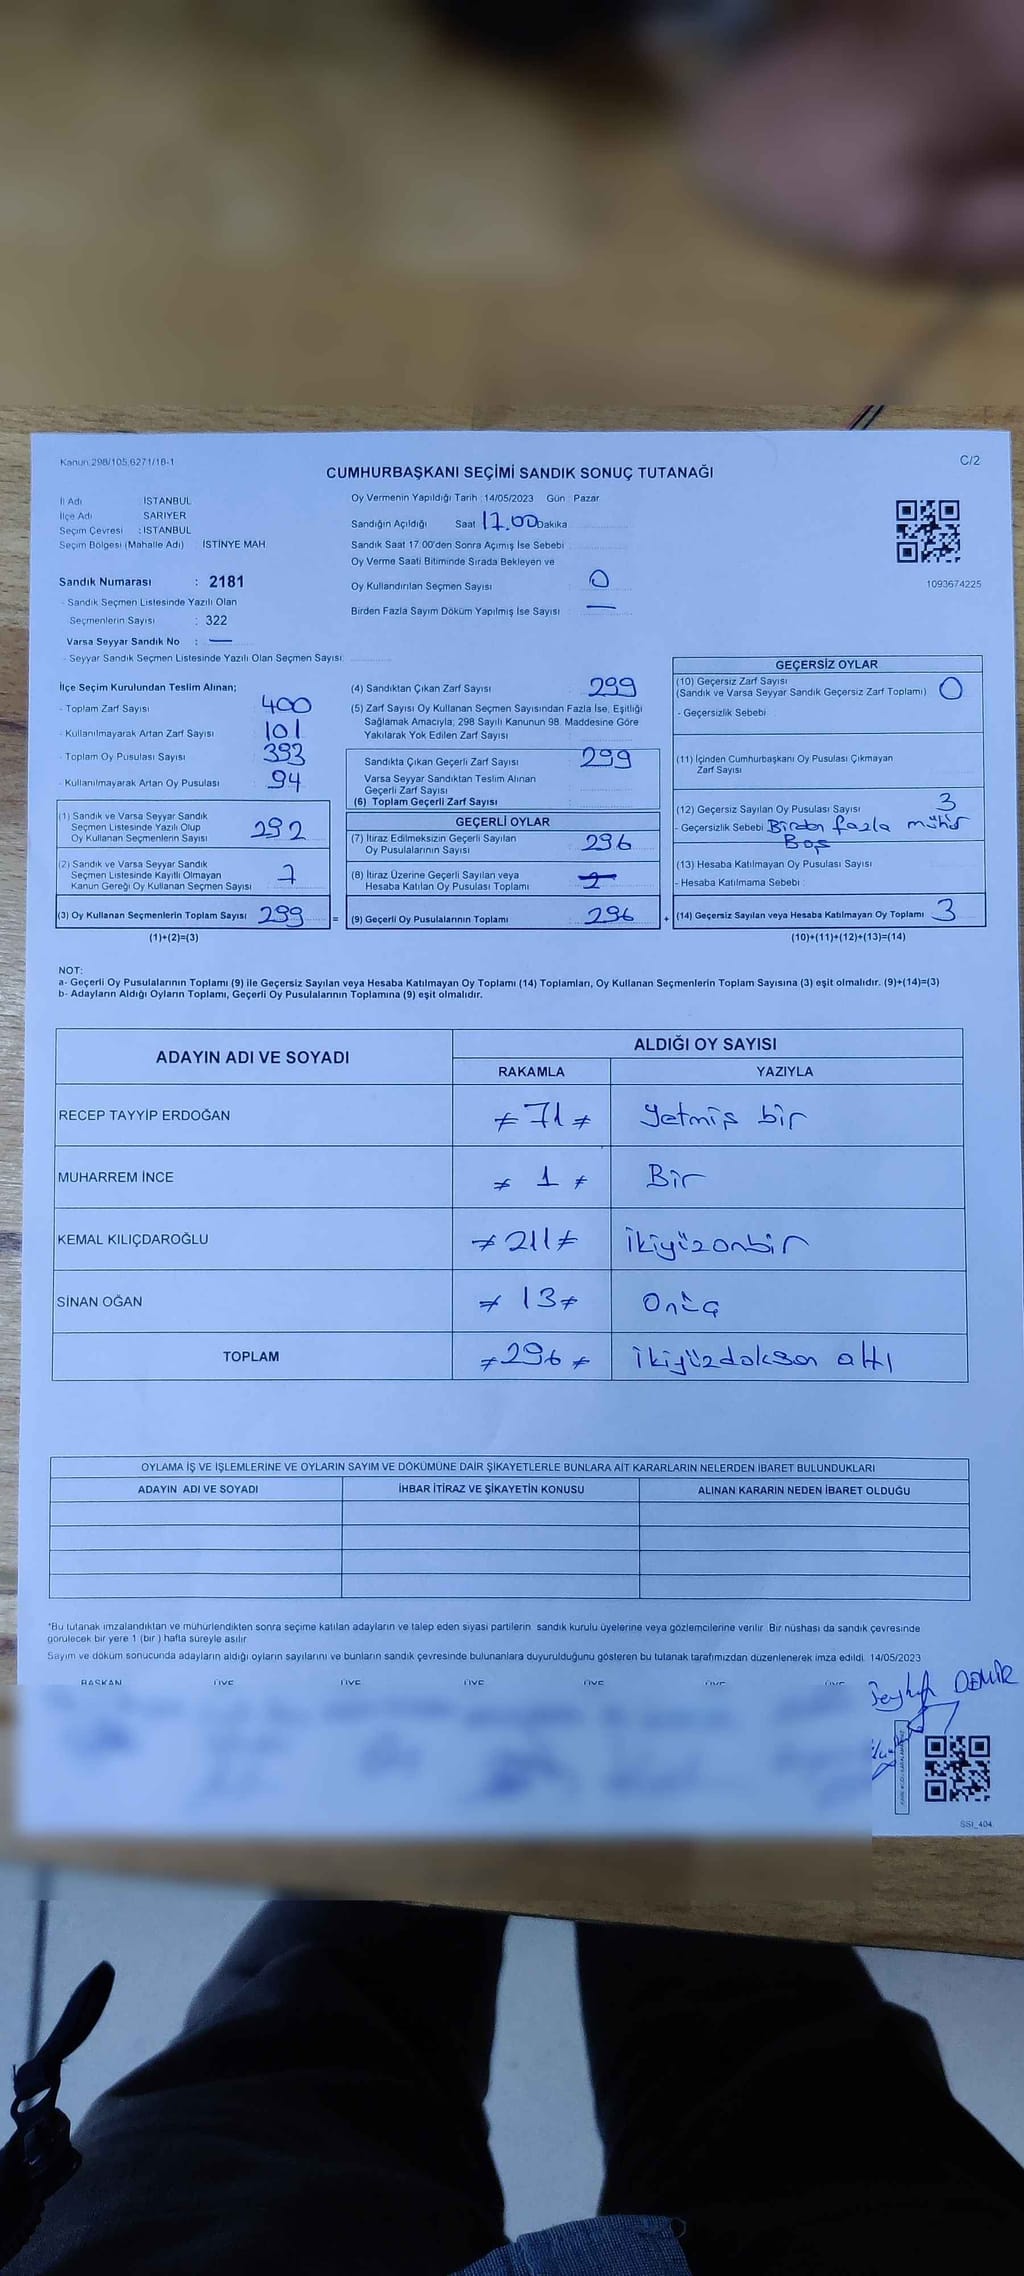 Kanun 298/105,6271/18-1
C/2
CUMHURBAŞKANI SEÇİMİ SANDIK SONUÇ TUTANAĞI
İl Adı İSTANBUL
İlçe Adı SARIYER
Seçim Çevresi : İSTANBUL
Seçim Bölgesi (Mahalle Adı) İSTİNYE MAH.
Oy Vermenin Yapıldığı Tarih :14/05/2023 Gün : Pazar
Sandığın Açıldığı Saat 17.00 Dakika
Sandık Saat 17:00'den Sonra Açımış İse Sebebi
Oy Verme Saati Bitiminde Sırada Bekleyen ve
Oy Kullandırılan Seçmen Sayısı : 0
Birden Fazla Sayım Döküm Yapılmış İse Sayısı : —
1093674225
Sandık Numarası : 2181
- Sandık Seçmen Listesinde Yazılı Olan
Seçmenlerin Sayısı : 322
Varsa Seyyar Sandık No : —
- Seyyar Sandık Seçmen Listesinde Yazılı Olan Seçmen Sayısı:
İlçe Seçim Kurulundan Teslim Alınan;
- Toplam Zarf Sayısı : 400
- Kullanılmayarak Artan Zarf Sayısı : 101
- Toplam Oy Pusulası Sayısı : 393
- Kullanılmayarak Artan Oy Pusulası : 94
(1) Sandık ve Varsa Seyyar Sandık
Seçmen Listesinde Yazılı Olup
Oy Kullanan Seçmenlerin Sayısı : 292
(2) Sandık ve Varsa Seyyar Sandık
Seçmen Listesinde Kayıtlı Olmayan
Kanun Gereği Oy Kullanan Seçmen Sayısı : 7
(3) Oy Kullanan Seçmenlerin Toplam Sayısı : 299
(1)+(2)=(3)
(4) Sandıktan Çıkan Zarf Sayısı : 299
(5) Zarf Sayısı Oy Kullanan Seçmen Sayısından Fazla İse, Eşitliği
Sağlamak Amacıyla, 298 Sayılı Kanunun 98. Maddesine Göre
Yakılarak Yok Edilen Zarf Sayısı
Sandıkta Çıkan Geçerli Zarf Sayısı : 299
Varsa Seyyar Sandıktan Teslim Alınan
Geçerli Zarf Sayısı
(6) Toplam Geçerli Zarf Sayısı
GEÇERLİ OYLAR
(7) İtiraz Edilmeksizin Geçerli Sayılan
Oy Pusulalarının Sayısı : 296
(8) İtiraz Üzerine Geçerli Sayılan veya
Hesaba Katılan Oy Pusulası Toplamı :
= (9) Geçerli Oy Pusulalarının Toplamı : 296
GEÇERSİZ OYLAR
(10) Geçersiz Zarf Sayısı
(Sandık ve Varsa Seyyar Sandık Geçersiz Zarf Toplamı) : 0
- Geçersizlik Sebebi
(11) İçinden Cumhurbaşkanı Oy Pusulası Çıkmayan
Zarf Sayısı
(12) Geçersiz Sayılan Oy Pusulası Sayısı 3
- Geçersizlik Sebebi Birden fazla mühür
Boş
(13) Hesaba Katılmayan Oy Pusulası Sayısı
- Hesaba Katılmama Sebebi :
+ (14) Geçersiz Sayılan veya Hesaba Katılmayan Oy Toplamı : 3
(10)+(11)+(12)+(13)=(14)
NOT:
a- Geçerli Oy Pusulalarının Toplamı (9) ile Geçersiz Sayılan veya Hesaba Katılmayan Oy Toplamı (14) Toplamları, Oy Kullanan Seçmenlerin Toplam Sayısına (3) eşit olmalıdır. (9)+(14)=(3)
b- Adayların Aldığı Oyların Toplamı, Geçerli Oy Pusulalarının Toplamına (9) eşit olmalıdır.
ADAYIN ADI VE SOYADI
ALDIĞI OY SAYISI
RAKAMLA YAZIYLA
RECEP TAYYİP ERDOĞAN ≠ 71 ≠ Yetmiş bir
MUHARREM İNCE ≠ 1 ≠ Bir
KEMAL KILIÇDAROĞLU ≠ 211 ≠ İkiyüzonbir
SİNAN OĞAN ≠ 13 ≠ Onüç
TOPLAM ≠ 296 ≠ İkiyüzdoksan altı
OYLAMA İŞ VE İŞLEMLERİNE VE OYLARIN SAYIM VE DÖKÜMÜNE DAİR ŞİKAYETLERLE BUNLARA AİT KARARLARIN NELERDEN İBARET BULUNDUKLARI
ADAYIN ADI VE SOYADI İHBAR İTİRAZ VE ŞİKAYETİN KONUSU ALINAN KARARIN NEDEN İBARET OLDUĞU
*Bu tutanak imzalandıktan ve mühürlendikten sonra seçime katılan adayların ve talep eden siyasi partilerin sandık kurulu üyelerine veya gözlemcilerine verilir. Bir nüshası da sandık çevresinde
görülecek bir yere 1 (bir ) hafta süreyle asılır.
Sayım ve döküm sonucunda adayların aldığı oyların sayılarını ve bunların sandık çevresinde bulunanlara duyurulduğunu gösteren bu tutanak tarafımızdan düzenlenerek imza edildi. 14/05/2023
BAŞKAN ÜYE ÜYE ÜYE ÜYE ÜYE ÜYE
DEMİR
SSİ_404